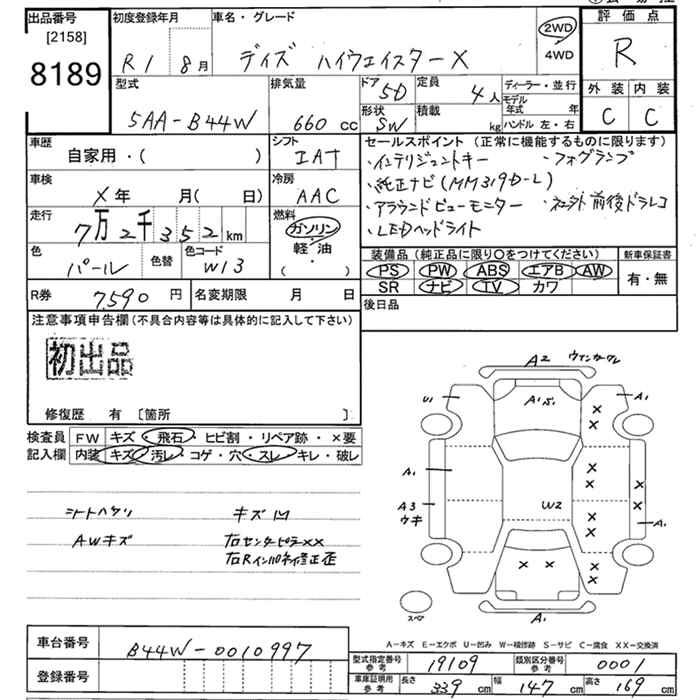 出品番号
[2158]
8189
初度登録年月
R1 8月
車名・グレード
デイズ ハイウェイスターX
2WD
4WD
評価点
R
外装 内装
C C
型式
5AA-B44W
排気量
660 cc
ドア 5D
定員 4人
形状 SW
積載 kg
ディーラー・並行
モデル年式 年
ハンドル 左・右
車歴
自家用・( )
シフト
IAT
車検
X年 月( 日)
冷房
AAC
走行
7万2千352km
燃料
ガソリン・
軽・油
( )
色
パール
色替
色コード
W13
セールスポイント (正常に機能するものに限ります)
・インテリジェントキー ・フォグランプ
・純正ナビ(MM319D-L)
・アラウンドビューモニター ・社外前後ドラレコ
・LEDヘッドライト
装備品 (純正品に限り○をつけてください)
新車保証書
PS PW ABS エアB AW
SR ナビ TV カワ
有・無
R券 7,590 円
名変期限 月 日
後日品
注意事項申告欄(不具合内容等は具体的に記入して下さい)
初出品
修復歴 有 〔箇所 〕
検査員
記入欄
FW キズ・飛石・ヒビ割・リペア跡・×要
内装 キズ・汚レ・コゲ・穴・スレ・キレ・破レ
シートヘタリ
AWキズ
キズ凹
右センターピラーXX
右Rインパネ修正歪
A2
U1
A1
A1
A3
ウキ
W2
A1
A1
スペア
A-キズ E-エクボ U-凹み W-補修跡 S-サビ C-腐食 XX-交換済
車台番号
B44W-0010997
登録番号
型式指定番号
参考
19109
類別区分番号
参考
0001
車庫証明用
参考
長さ 339 cm
幅 147 cm
高さ 169 cm